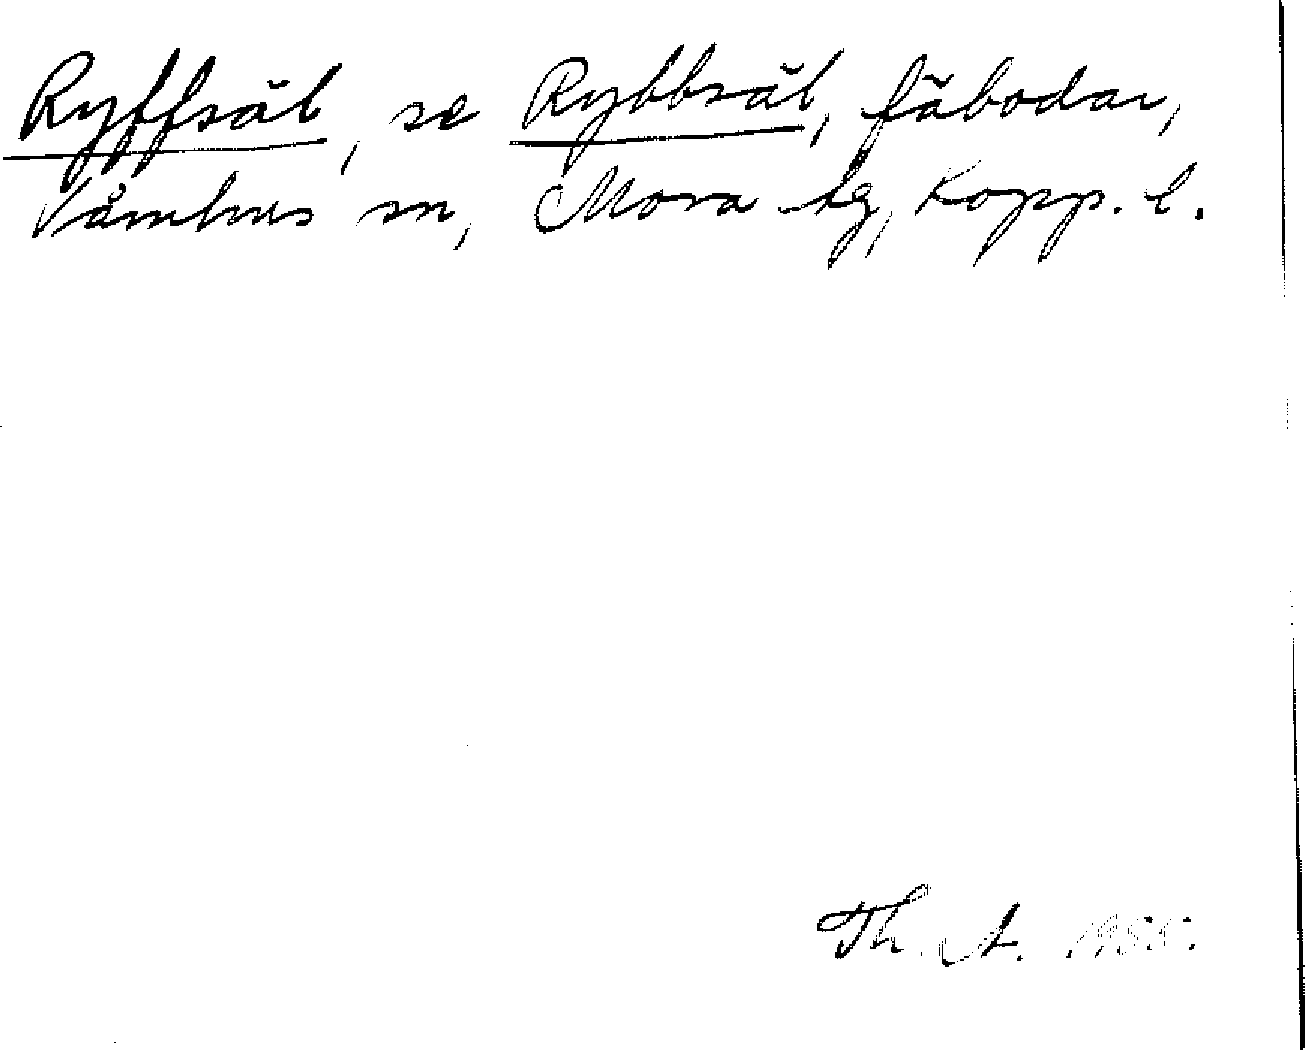 Ryffsäl, se Rybbsäl, fäbodar,
Våmhus sn, Mora tg, Kopp. l.
Th. A. 1955.